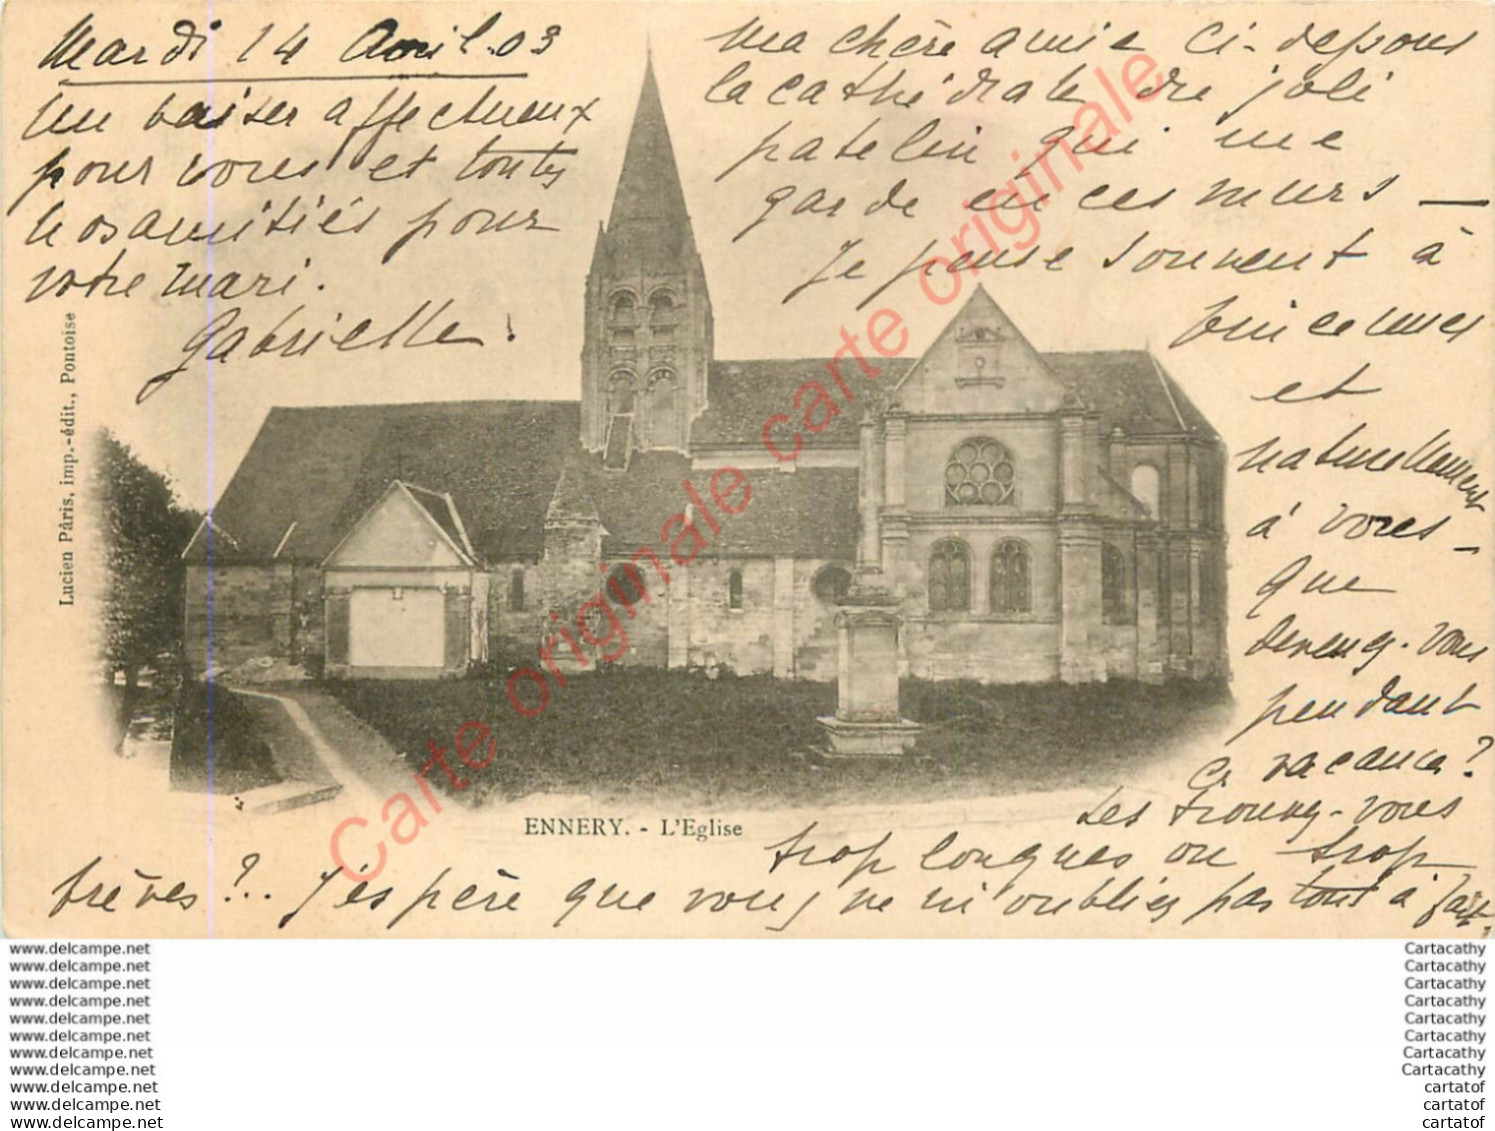 Mardi 14 Avril. 03
Ma chère amie ci-dessous
la cathédrale du joli
patelin qui me
garde en ces murs —
Je pense souvent à
Vincennes
et
naturellement
à vous –
que
devenez-vous
pendant
ces vacances?
Les trouvez-vous
trop longues ou trop
brèves?.. J'espère que vous ne m'oubliez pas tout à fait.
Un baiser affectueux
pour vous et toutes
nos amitiés pour
votre mari.
Gabrielle.
Lucien Pâris, imp.-édit., Pontoise
ENNERY. - L'Eglise
Carte originale carte originale
www.delcampe.net
www.delcampe.net
www.delcampe.net
www.delcampe.net
www.delcampe.net
www.delcampe.net
www.delcampe.net
www.delcampe.net
www.delcampe.net
www.delcampe.net
www.delcampe.net
Cartacathy
Cartacathy
Cartacathy
Cartacathy
Cartacathy
Cartacathy
Cartacathy
Cartacathy
cartatof
cartatof
cartatof